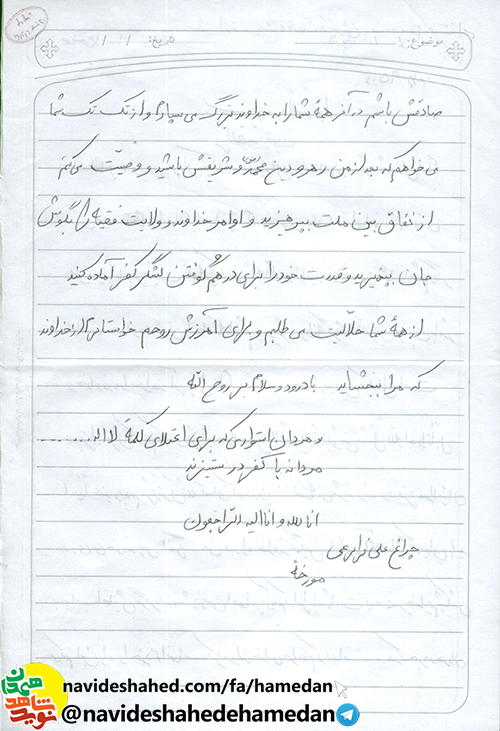 موضوع: تاریخ: / /
صادقش باشم در آخر همهٔ شما را به خداوند بزرگ می سپارم و از تک تک شما
می خواهم که بعد از من رهرو دین محمد (ص) و شریفش باشید و وصیت می کنم
از نفاق بین ملت بپرهیزید و اوامر خداوند و ولایت فقیه را بگوش
جان بپذیرید و قدرت خود را برای درهم کوفتن لشگر کفر آماده کنید
از همهٔ شما حلالیت می طلبم و برای آمرزش روحم خواستارم از خداوند
که مرا ببخشاید با درود و سلام بر روح الله
و مردان استواری که برای اعتلای کلمهٔ لااله ..........
مردانه با کفر در ستیزند
انا لله و انا الیه راجعون
چراغ علی
مورخهٔ
نوید شاهد همدان
navideshahed.com/fa/hamedan
@navideshahedehamedan